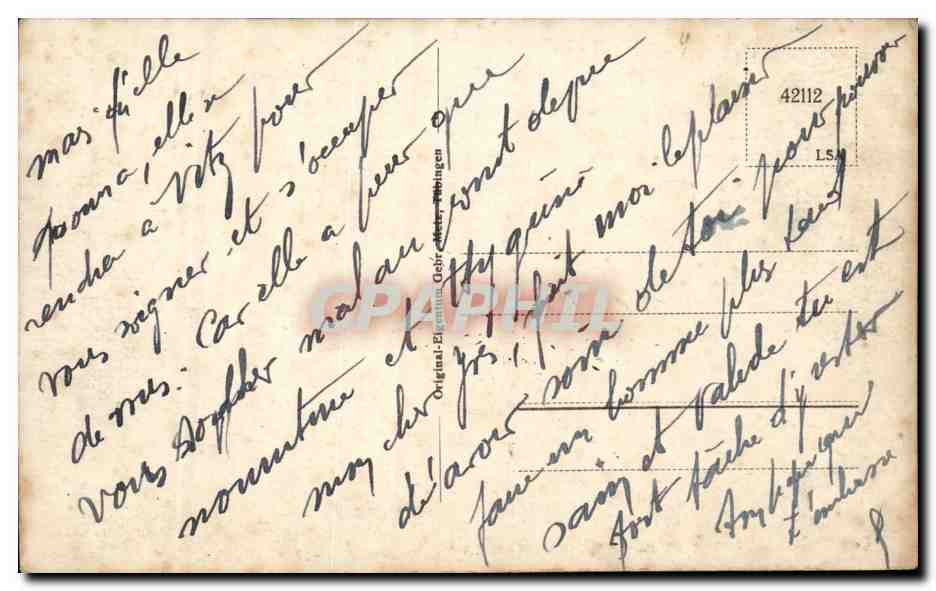 mais qu'elle
pourra, elle
rendra à Vitz pour
vous soigner et s'occuper
de vous. Car elle a peur que
vous soyez mal au point de vue
nourriture et hygiène
mon cher, fait moi le plaisir
d'avoir soin de toi pour pouvoir
faire un homme plus tard
sain et valide tu est
fort tâche d'y rester
t'embrasse
42112
LSA
Original-Eigentum Gebr. Metz, Tübingen
CPAPHIL